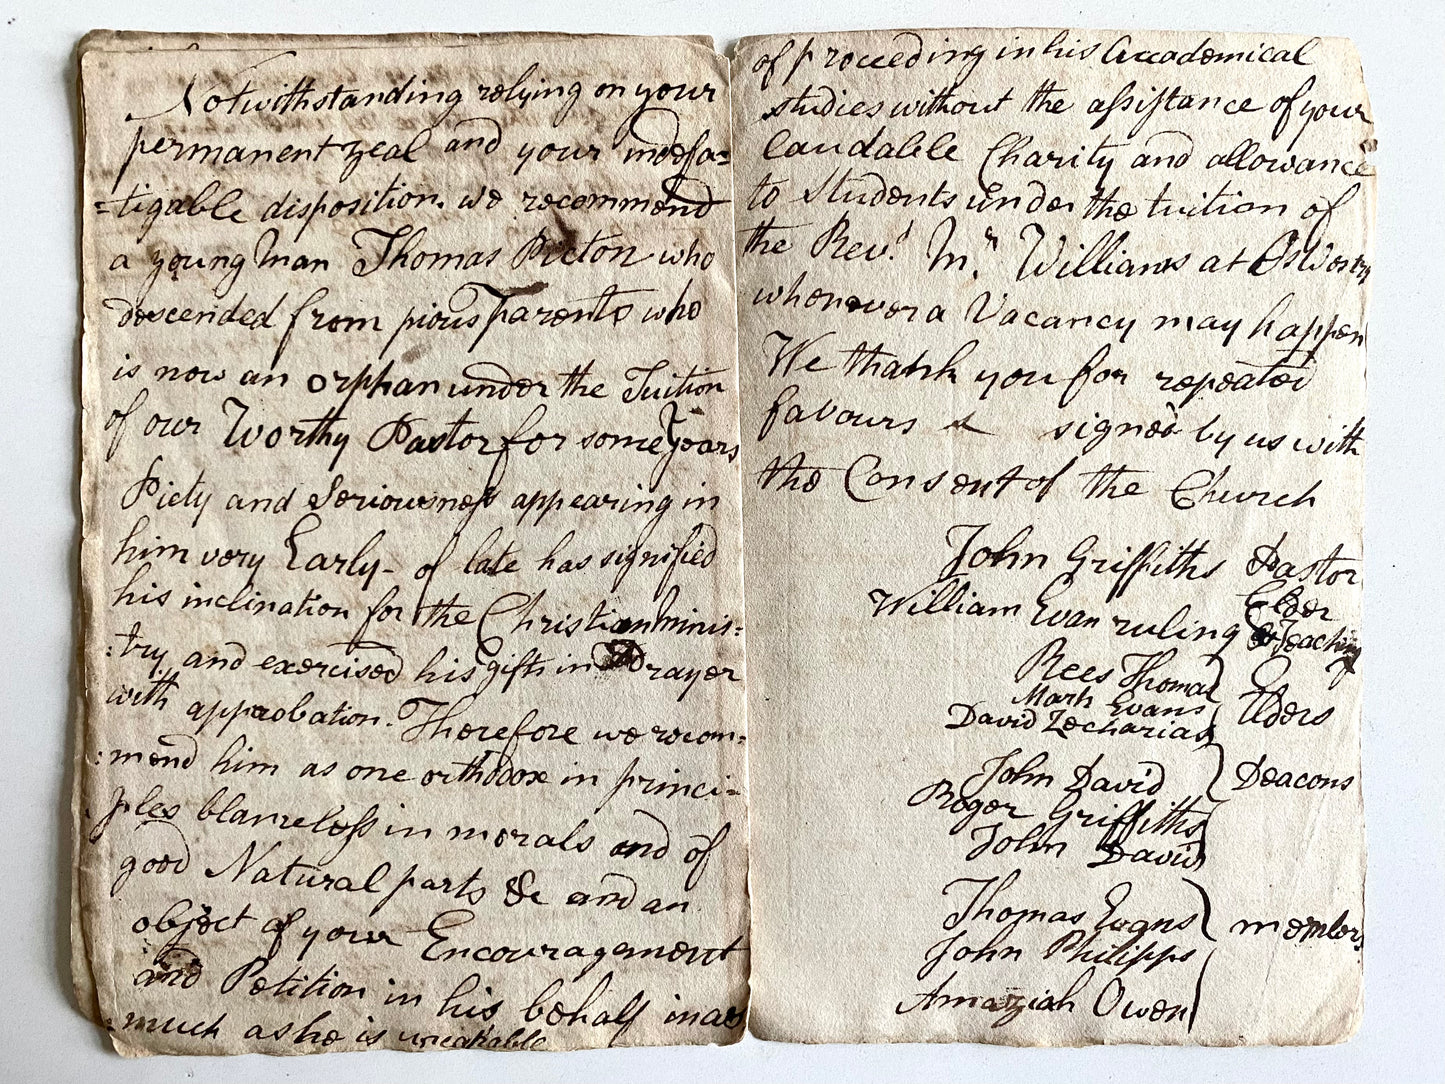 Notwithstanding relying on your
permanent zeal and your indefa=
=tigable disposition. we recommend
a young Man Thomas Picton who
descended from pious Parents who
is now an orphan under the Tuition
of our Worthy Pastor for some Years
Piety and Seriousness appearing in
him very Early - of late has signified
his inclination for the Christian minis:
:try and exercised his gift in Prayer
with approbation. Therefore we recom=
:mend him as one orthodox in princi=
ples blameless in morals and of
good Natural parts &c and an
object of your Encouragement
and Petition in his behalf in as
much as he is uncapable
of proceeding in his Accademical
studies without the assistance of your
laudable Charity and allowance
to Students under the tuition of
the Revd. Mr. Williams at Oswestry
whenever a Vacancy may happen
We thank you for repeated
favours & signed by us with
the Consent of the Church
John Griffiths Pastor
William Evan ruling Elder & Teaching
Rees Thomas
Mark Evans
David Zecharias
Elders
John David
Deacons
Roger Griffiths
John David
Thomas Evans
members
John Philipps
Amaziah Owen